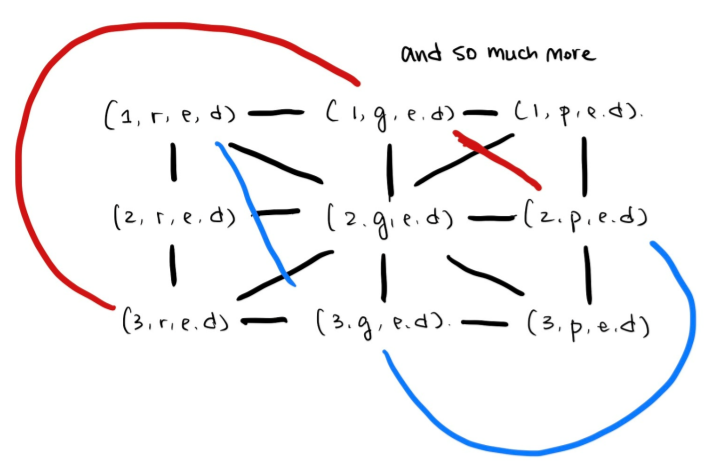 and so much more
(1, r, e, d) (1, g, e.d) (1, p, e.d).
(2, r, e, d) (2.g, e.d) (2.p, e.d)
(3, r, e.d) (3.g, e.d). (3, p, e.d)